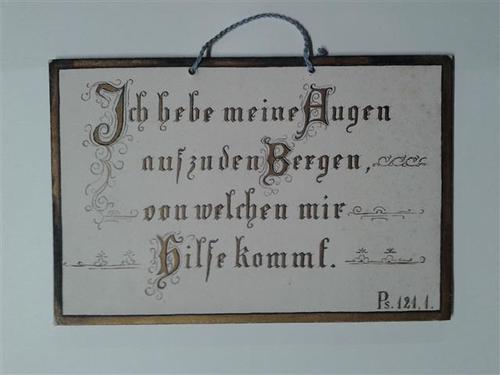 Ich hebe meine Augen
auf zu den Bergen,
von welchen mir
Hilfe kommt.
Ps. 121, 1.